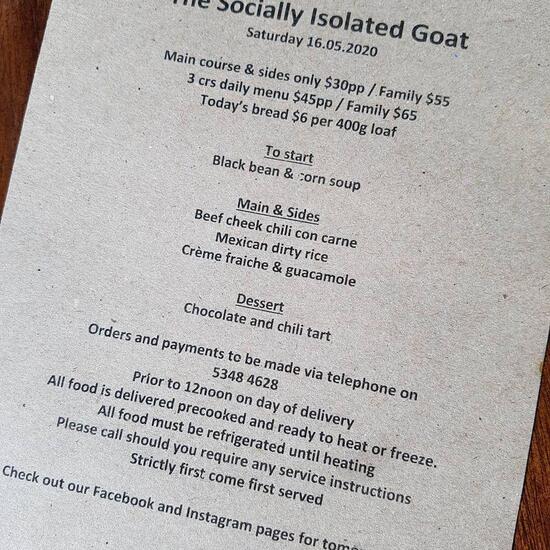 The Socially Isolated Goat
Saturday 16.05.2020
Main course & sides only $30pp / Family $55
3 crs daily menu $45pp / Family $65
Today's bread $6 per 400g loaf
To start
Black bean & corn soup
Main & Sides
Beef cheek chili con carne
Mexican dirty rice
Crème fraiche & guacamole
Dessert
Chocolate and chili tart
Orders and payments to be made via telephone on
5348 4628
Prior to 12noon on day of delivery
All food is delivered precooked and ready to heat or freeze.
All food must be refrigerated until heating
Please call should you require any service instructions
Strictly first come first served
Check out our Facebook and Instagram pages for